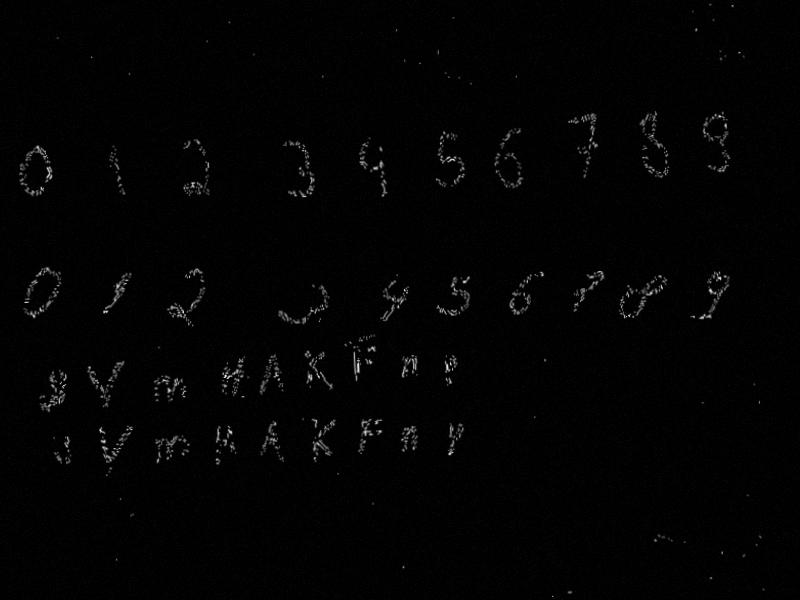 0 1 2 3 4 5 6 7 8 9
0 1 2 3 4 5 6 7 8 9
V m H A K F n p
J V m H A K F n p